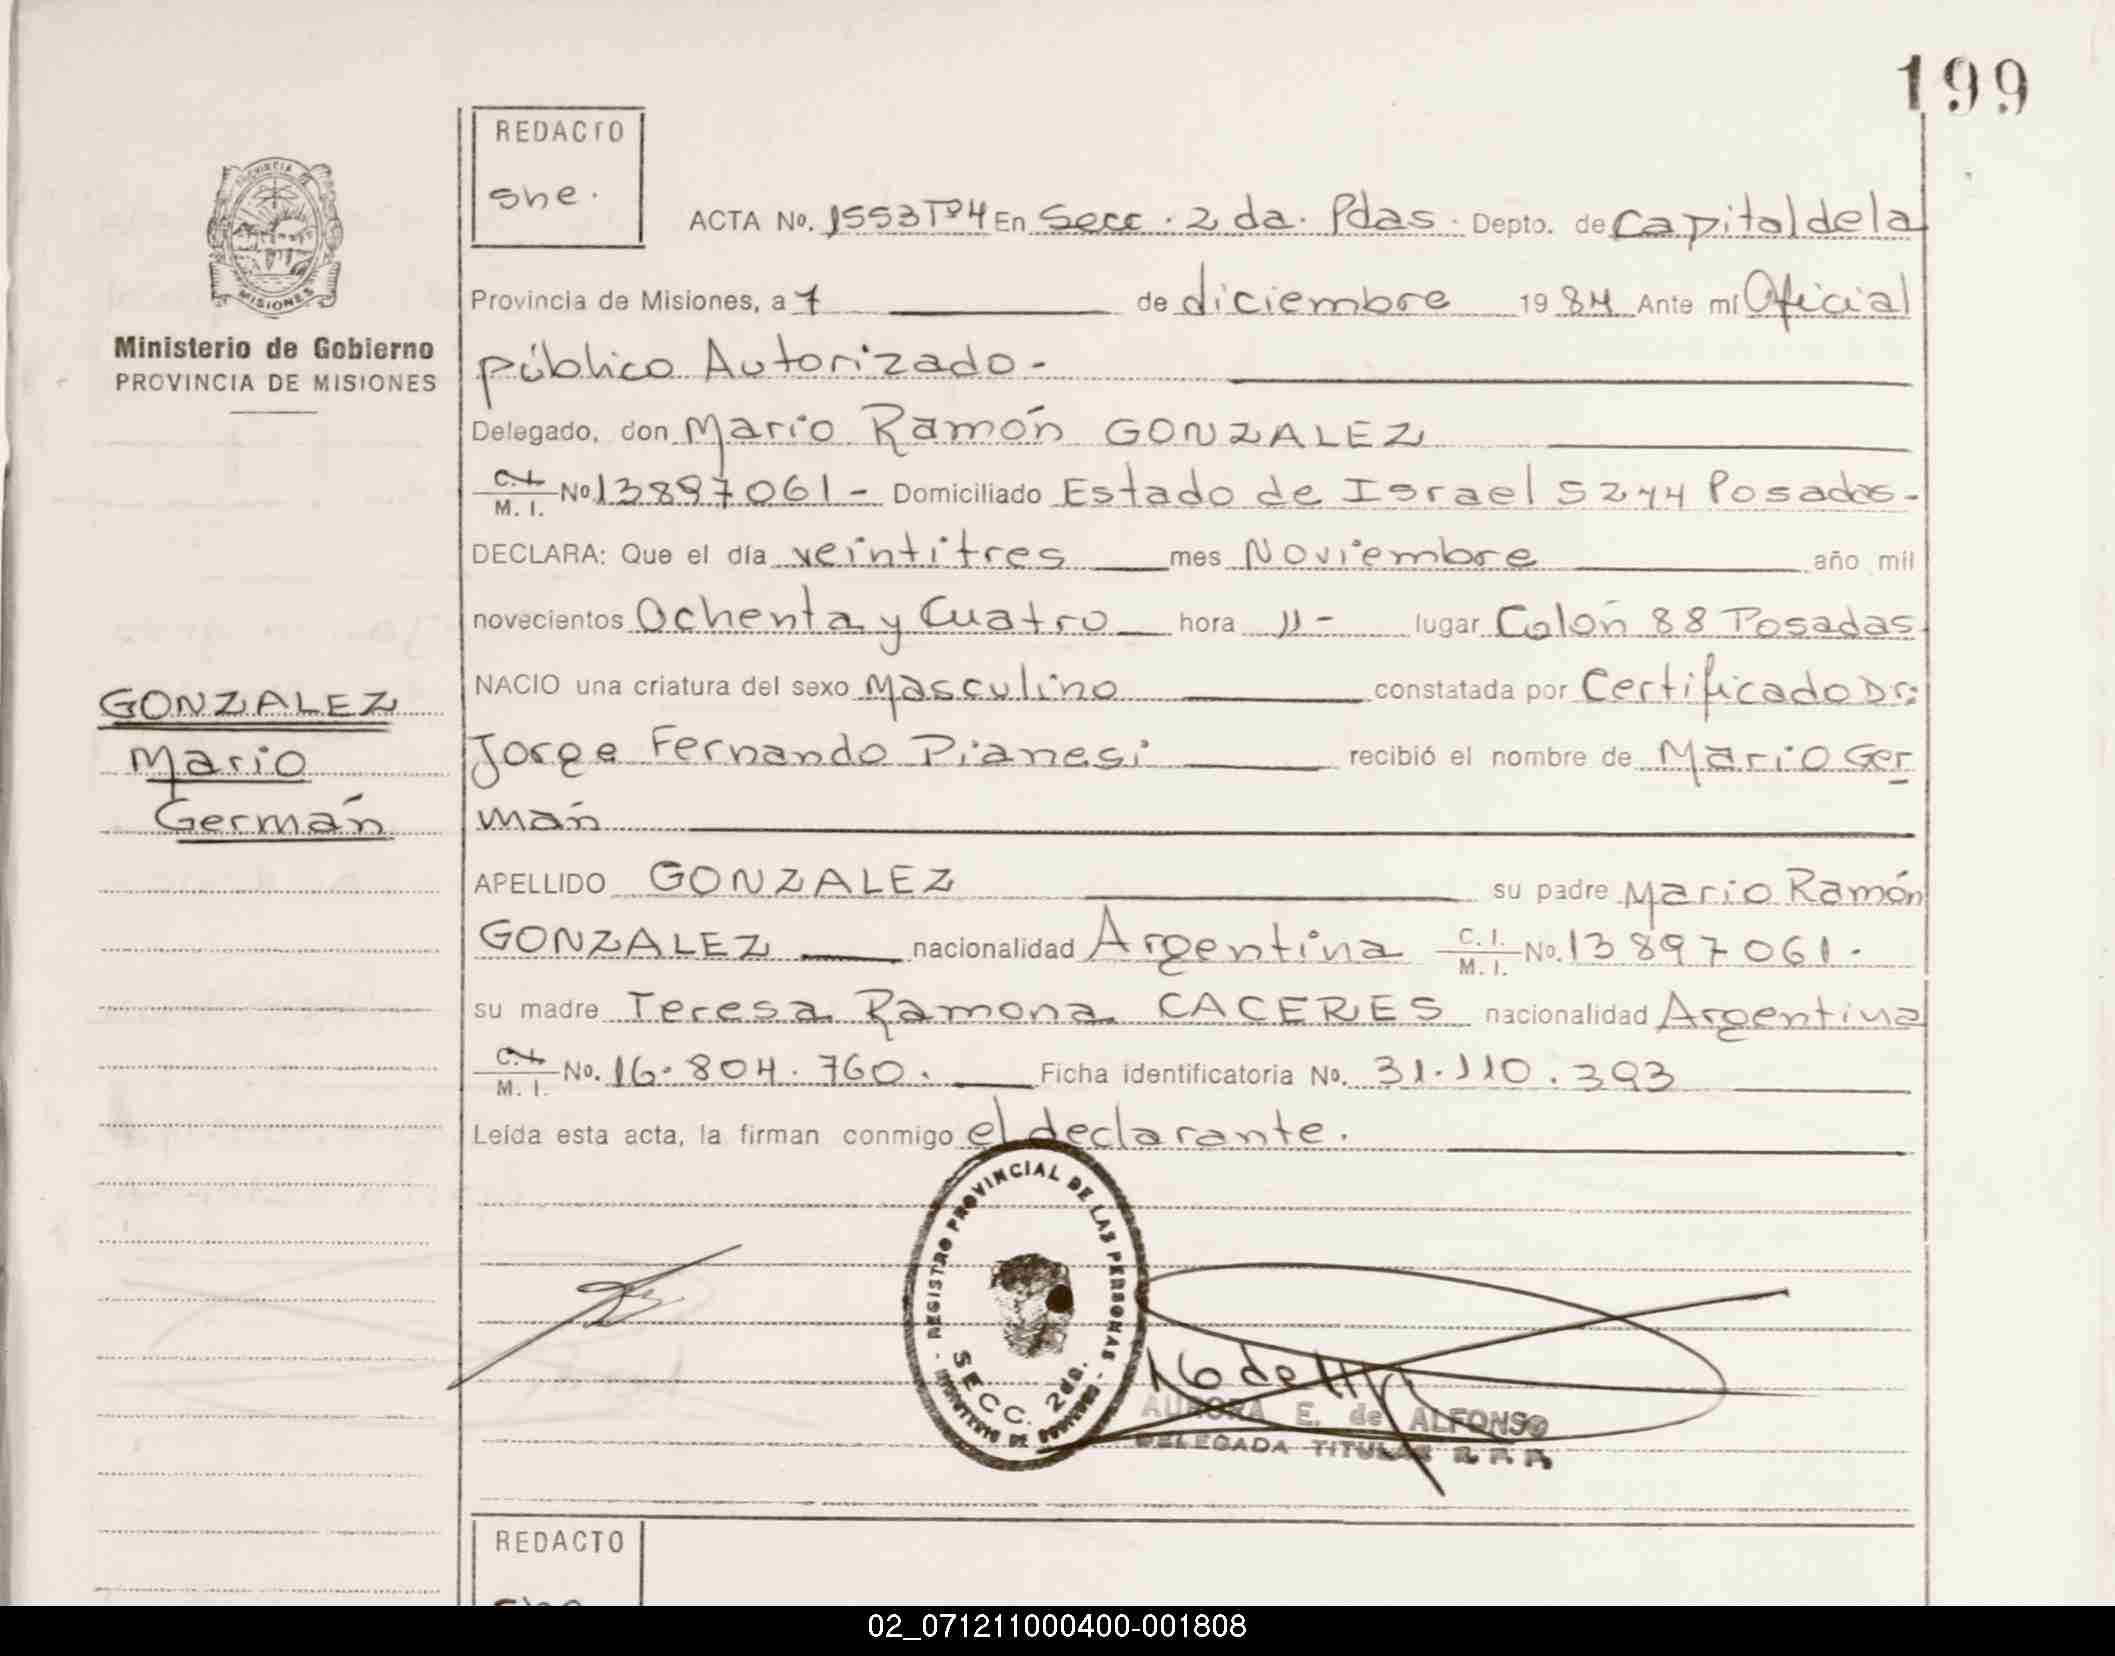 199
REDACTO
sne.
ACTA No. 1553 Tº4 En Secc. 2da. Pdas. Depto. de Capital de la
PROVINCIA DE
MISIONES
Provincia de Misiones, a 7 de diciembre 1984 Ante mí Oficial
Ministerio de Gobierno
PROVINCIA DE MISIONES
público Autorizado.-
Delegado, don Mario Ramón GONZALEZ
C.I. M.I. No 13897061- Domiciliado Estado de Israel 5244 Posadas.-
DECLARA: Que el día veintitres mes Noviembre año mil
novecientos Ochenta y Cuatro hora 11- lugar Colón 88 Posadas
NACIO una criatura del sexo Masculino constatada por Certificado Dr:
GONZALEZ
Mario
Germán
Jorge Fernando Pianesi recibió el nombre de Mario Ger
mán
APELLIDO GONZALEZ su padre Mario Ramón
GONZALEZ nacionalidad Argentina C.I. M.I. No. 13897061.
su madre Teresa Ramona CACERES nacionalidad Argentina
C.I. M.I. No. 16.804.760. Ficha identificatoria No. 31.110.393
Leída esta acta, la firman conmigo el declarante.
REGISTRO PROVINCIAL DE LAS PERSONAS
SECC. 2da.
AURORA E. de ALFONSO
DELEGADA TITULAR R.P.P.
REDACTO
02_071211000400-001808